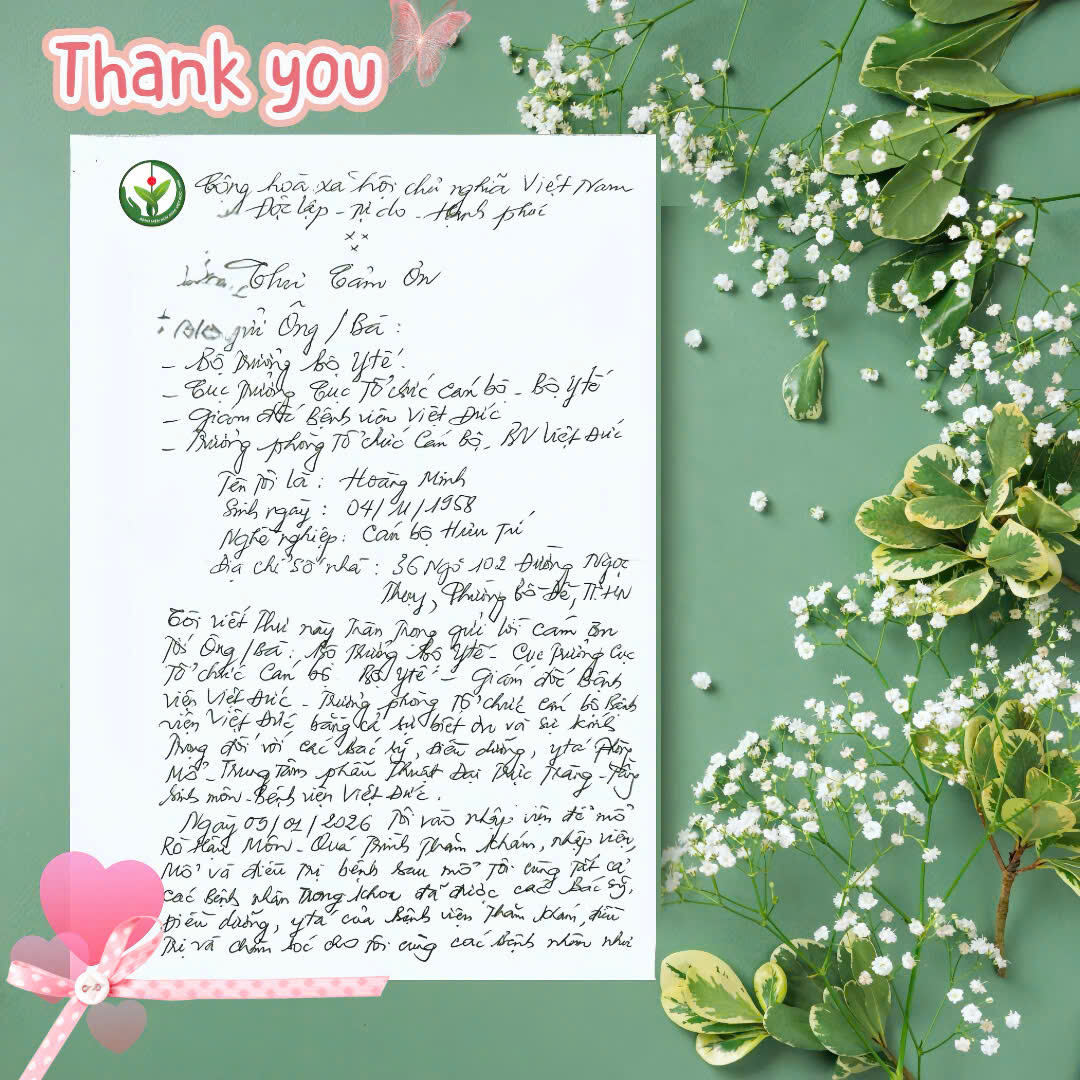 Thank you
Cộng hoà xã hội chủ nghĩa Việt Nam
Độc lập - Tự do - Hạnh phúc
Thư Cảm Ơn
gửi Ông / Bà :
- Bộ Trưởng Bộ Y tế.
- Cục Trưởng Cục Tổ chức cán bộ - Bộ Y tế
- Giám đốc Bệnh viện Việt Đức
- Trưởng phòng Tổ chức Cán Bộ - BV Việt Đức
Tên tôi là : Hoàng Minh
Sinh ngày : 04/11/1958
Nghề nghiệp : Cán bộ Hưu Trí
Địa chỉ số nhà : 36 Ngõ 102 Đường Ngọc
Thụy, Phường Bồ Đề, TP. HN
Tôi viết Thư này Trân Trọng gửi lời cảm ơn
Tới Ông/Bà : Bộ Trưởng Bộ Y tế - Cục Trưởng Cục
Tổ chức Cán bộ Bộ Y tế - Giám đốc Bệnh
viện Việt Đức - Trưởng phòng Tổ chức cán bộ Bệnh
viện Việt Đức bằng cả sự biết ơn và sự kính
Trọng đối với các Bác sỹ, Điều dưỡng, y tá Phòng
Mổ - Trung Tâm phẫu Thuật Đại Trực Tràng - Tầng
Sinh môn - Bệnh viện Việt Đức.
Ngày 05/01/2026 Tôi vào nhập viện để mổ
Rò Hậu Môn - Quá Trình Thăm khám, nhập viện,
Mổ và điều Trị bệnh sau mổ Tôi cùng Tất cả
các Bệnh nhân Trong khoa đã được các Bác sỹ,
Điều dưỡng, y tá của Bệnh viện Thăm khám, điều
Trị và chăm sóc cho Tôi cùng các Bệnh nhân như